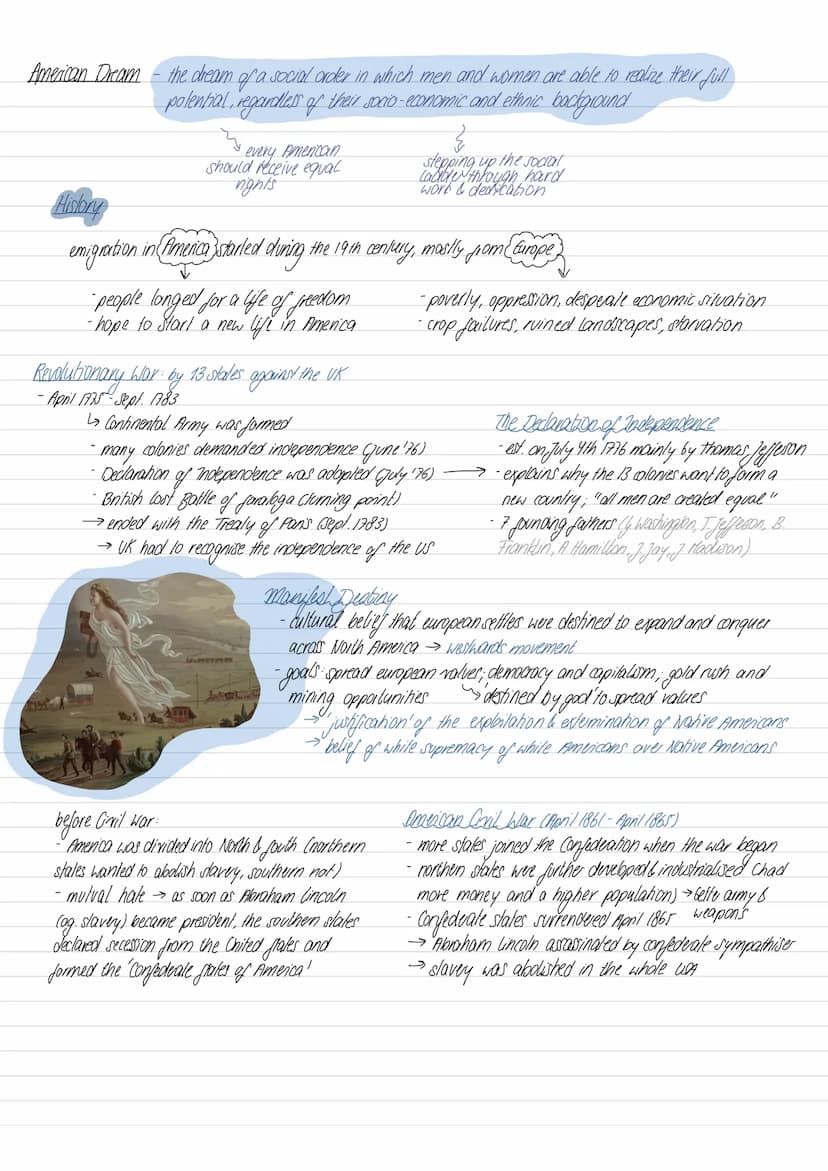 American Dream - the dream of a social order in which men and women are able to realize their full
potential, regardless of their socio-economic and ethnic background
every American
should receive equal
rights
stepping up the social
ladder through hard
work & dedication
History
emigration in America started during the 19th century, mostly from Europe
- people longed for a life of freedom
- hope to start a new life in America
- poverty, oppression, desperate economic situation
- crop failures, ruined landscapes, starvation
Revolutionary War: by 13 states against the UK
- April 1775 - Sept. 1783
↳ Continental Army was formed
- many colonies demanded independence (June '76)
- Declaration of Independence was adopted (July '76) →
- British lost Battle of Saratoga (turning point)
→ ended with the Treaty of Paris (Sept. 1783)
→ UK had to recognise the independence of the US
The Declaration of Independence
- est. on July 4th 1776 mainly by Thomas Jefferson
- explains why the 13 colonies want to form a
new country; "all men are created equal"
- 7 founding fathers (J Washington, T. Jefferson, B.
Franklin, A Hamilton, J. Jay, J Madison)
Manifest Destiny
- cultural belief that european settlers were destined to expand and conquer
across North America → westwards movement
- goals: spread european values; democracy and capitalism; gold rush and
mining opportunities ↳ 'destined by god' to spread values
→ 'justification' of the exploitation & extermination of Native Americans
→ belief of white supremacy of white Americans over Native Americans
before Civil War:
- America was divided into North & South (northern
states wanted to abolish slavery, southern not)
- mutual hate → as soon as Abraham Lincoln
(ag. slavery) became president, the southern states
declared secession from the United States and
formed the 'Confederate States of America'
American Civil War (April 1861 - April 1865)
- more states joined the Confederation when the war began
- northern states were further developed & industrialised (had
more money and a higher population) → better army &
weapons
- Confederate states surrendered April 1865
→ Abraham Lincoln assassinated by confederate sympathiser
→ slavery was abolished in the whole USA